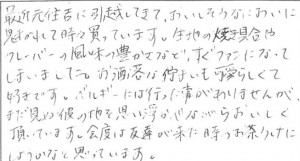 最近元住吉に引越してきて、おいしそうなにおいに
魅かれて時々買っています。生地の焼き具合や
フレーバーの風味の豊かさなど、すぐファンになって
しまいました。お洒落な佇まいも愛らしくて
好きです。ベルギーには行った事がありませんが
まだ見ぬ彼の地を思い浮かべながらおいしく
頂いています。今度は友達が来た時のお茶うけに
しようかなと思っています。